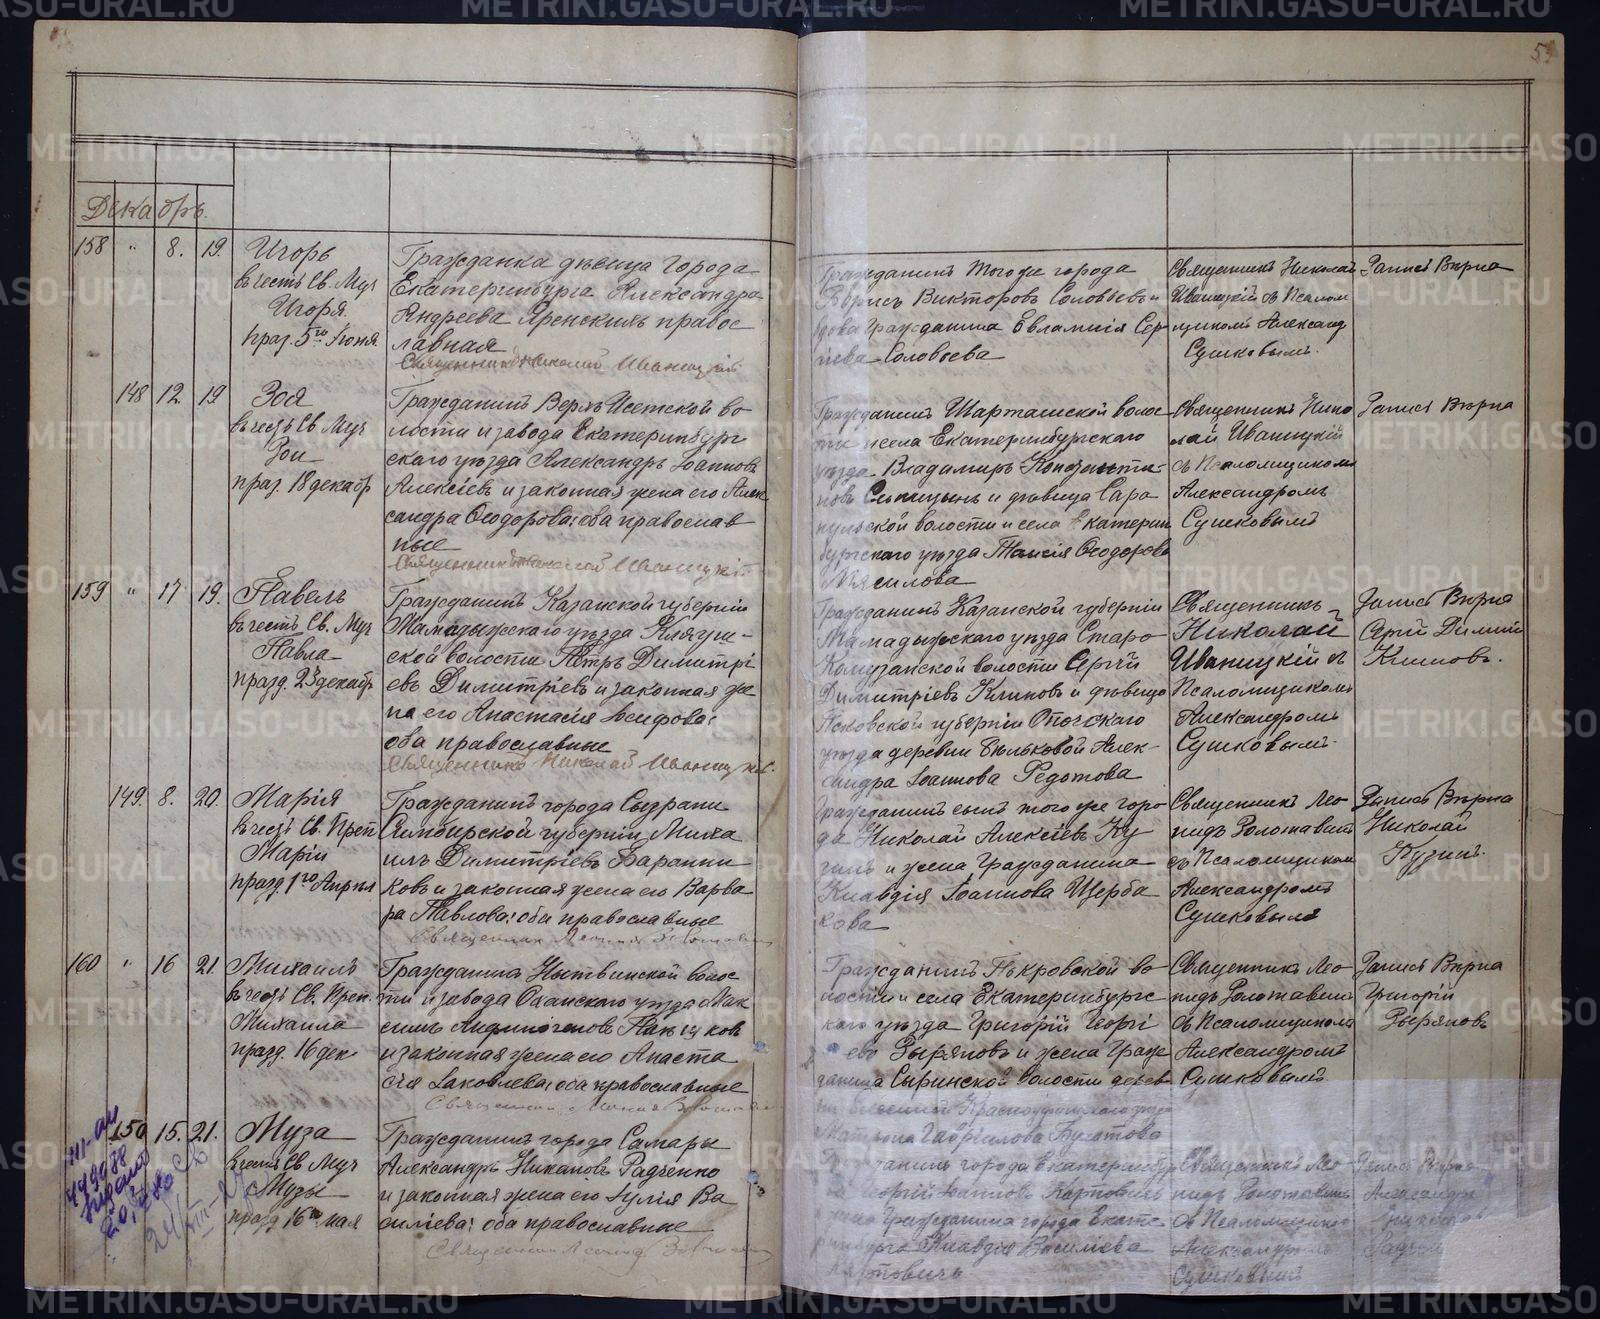 Декабрь.
158 " 8. 19. Игорь
въ честь Св. Муч
Игоря
праз. 5го Iюня
Гражданка дѣвица города
Екатеринбурга Александра
Андреева Яренскихъ правос
лавная
Священникъ Николай Иваницкiй
Гражданинъ того же города
Борисъ Викторовъ Соловьевъ и
вдова гражданина Евлампiя Сер
гiева Соловьева
Священникъ Николай
Иваницкiй съ Псалом
щикомъ Александ
Сушковымъ.
Запись Вѣрна
148 12. 19 Зоя
въ честь Св. Муч
Зои
праз. 18 декабр
Гражданинъ Верхъ Исетской во
лости и завода Екатеринбург
скаго уѣзда Александръ Iоанновъ
Алексiевъ и законная жена его Алек
сандра Ѳеодорова: оба православ
ные
Священникъ Николай Иваницкiй
Гражданинъ Шарташской волос
ти и села Екатеринбургскаго
уѣзда Владимиръ Константи-
новъ и дѣвица Сара
пульской волости и села Екатерин
бургскаго уѣзда Таисiя Ѳеодорова
Мясилова
Священникъ Нико
лай Иваницкiй
съ Псаломщикомъ
Александромъ
Сушковымъ
Запись Вѣрна
159 " 17 19. Павелъ
въ честь Св. Муч
Павла
празд. 23 декабр
Гражданинъ Казанской губернiи
Мамадыжскаго уѣзда Кляуш-
ской волости Петръ Димитрi
евъ Димитрiевъ и законная же
на его Анастасiя Iосифова:
оба православные
Священникъ Николай Иваницкiй.
Гражданинъ Казанской губернiи
Мамадыжскаго уѣзда Старо-
волости Сергiй
Димитрiевъ Климовъ и дѣвица
Псковской губернiи Опочскаго
уѣзда деревни Бѣльковой Алек-
сандра Iоаннова Федотова
Священникъ
Николай
Иваницкiй съ
Псаломщикомъ
Александромъ
Сушковымъ.
Запись Вѣрна
Сергiй Димит
Климовъ.
149. 8. 20. Марiя
въ честь Св. Преп
Марiи
празд. 1го Апрѣля
Гражданинъ города Сызрани
Симбирской губернiи Миха
илъ Димитрiевъ Баранни
ковъ и законная жена его Варва
ра Павлова: оба православные
Священник Леонид Золотавин
Гражданинъ сынъ того же горо-
да Николай Алексiевъ Ку
зинъ и жена гражданина
Клавдiя Iоаннова Щерба
кова
Священникъ Лео
нидъ Золотавинъ
съ Псаломщикомъ
Александромъ
Сушковымъ
Запись Вѣрна
Николай
Кузинъ.
160 " 16 21. Михаилъ
въ честь Св. Преп.
Михаила
празд. 16 дек.
Гражданинъ Нытвинской волос
ти и завода Оханскаго уѣзда Мак
симъ
и законная жена его Анаста
сiя Iаковлева: оба православные
Священник Леонид Золотавин
Гражданинъ Покровской во-
лости и села Екатеринбургс
каго уѣзда Григорiй Георгi
евъ Зыряновъ и жена граж
данина Сыринской волости дерев
Красноуфимскаго уѣзда
Матрона Гаврiилова
Священникъ Лео
нидъ Золотавинъ
съ Псаломщикомъ
Александромъ
Сушковымъ.
Запись Вѣрна
Григорiй
Зыряновъ
150 15. 21. Муза
въ честь Св Муч
Музы
празд 16го мая
Гражданинъ города Самары
Александръ Никановъ Радченко
и законная жена его Iулiя Ва
силiева: оба православные
Священник Леонид Золотавин
Гражданинъ города Екатеринбур
Георгiй Iоанновъ Карповичъ
жена гражданина города Екате-
ринбурга Клавдiя Василiева
Карповичъ
Священникъ Лео
нидъ Золотавинъ
съ Псаломщикомъ
Александромъ
Сушковымъ
Запись Вѣрна
Александръ